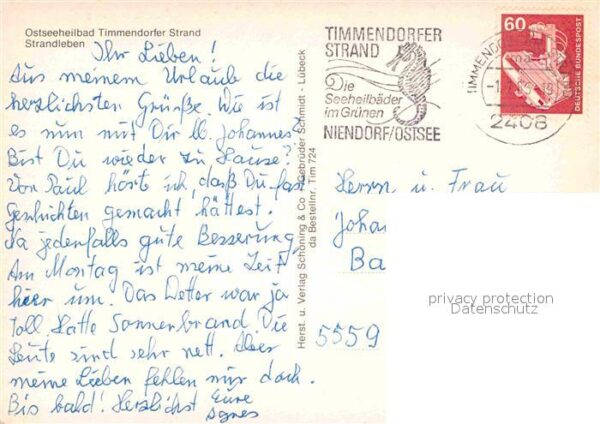 Ostseeheilbad Timmendorfer Strand
Strandleben
Ihr Lieben!
Aus meinem Urlaub die
herzlichsten Grüße. Wie ist
es nun mit Dir lb. Johannes?
Bist Du wieder zu Hause?
Von Paul hört ich, daß Du fast
Geschichten gemacht hättest.
Na jedenfalls gute Besserung.
Am Montag ist meine Zeit
hier um. Das Wetter war ja
toll. Hatte Sonnenbrand. Die
Leute sind sehr nett. Aber
meine Lieben fehlen mir doch.
Bis bald! Herzlichst Eure
Agnes
Herst. u. Verlag Schöning & Co + Gebrüder Schmidt - Lübeck
da Bestellnr. Tim 724
TIMMENDORFER
STRAND
Die
Seeheilbäder
im Grünen
NIENDORF/OSTSEE
TIMMENDO
2408
60
DEUTSCHE BUNDESPOST
Herrn u. Frau
Joha
Ba
5559
privacy protection
Datenschutz